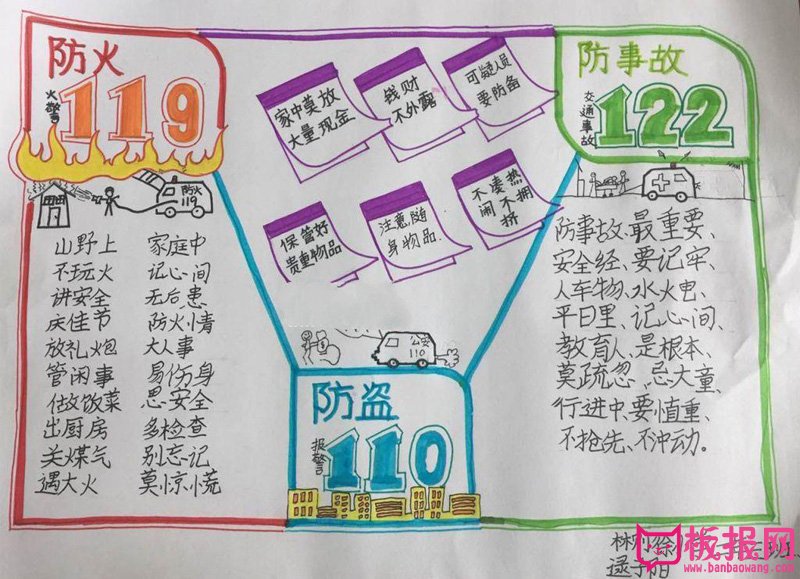 防火
火警
119
防火
119
山野上 家庭中
不玩火 记心间
讲安全 无后患
庆佳节 防火情
放礼炮 大人事
管闲事 易伤身
做饭菜 思安全
出厨房 多检查
关煤气 别忘记
遇大火 莫惊慌
家中莫放
大量现金
钱财
不外露
可疑人员
要防备
保管好
贵重物品
注意随
身物品
不凑热
闹不拥
挤
公安
110
防盗
报警
110
防事故
交通事故
122
防事故、最重要、
安全经、要记牢、
人车物、水火电、
平日里、记心间、
教育人、是根本、
莫疏忽、忌大童、
行进中、要慎重、
不抢先、不冲动。
林
班
板报网
www.banbaowang.com